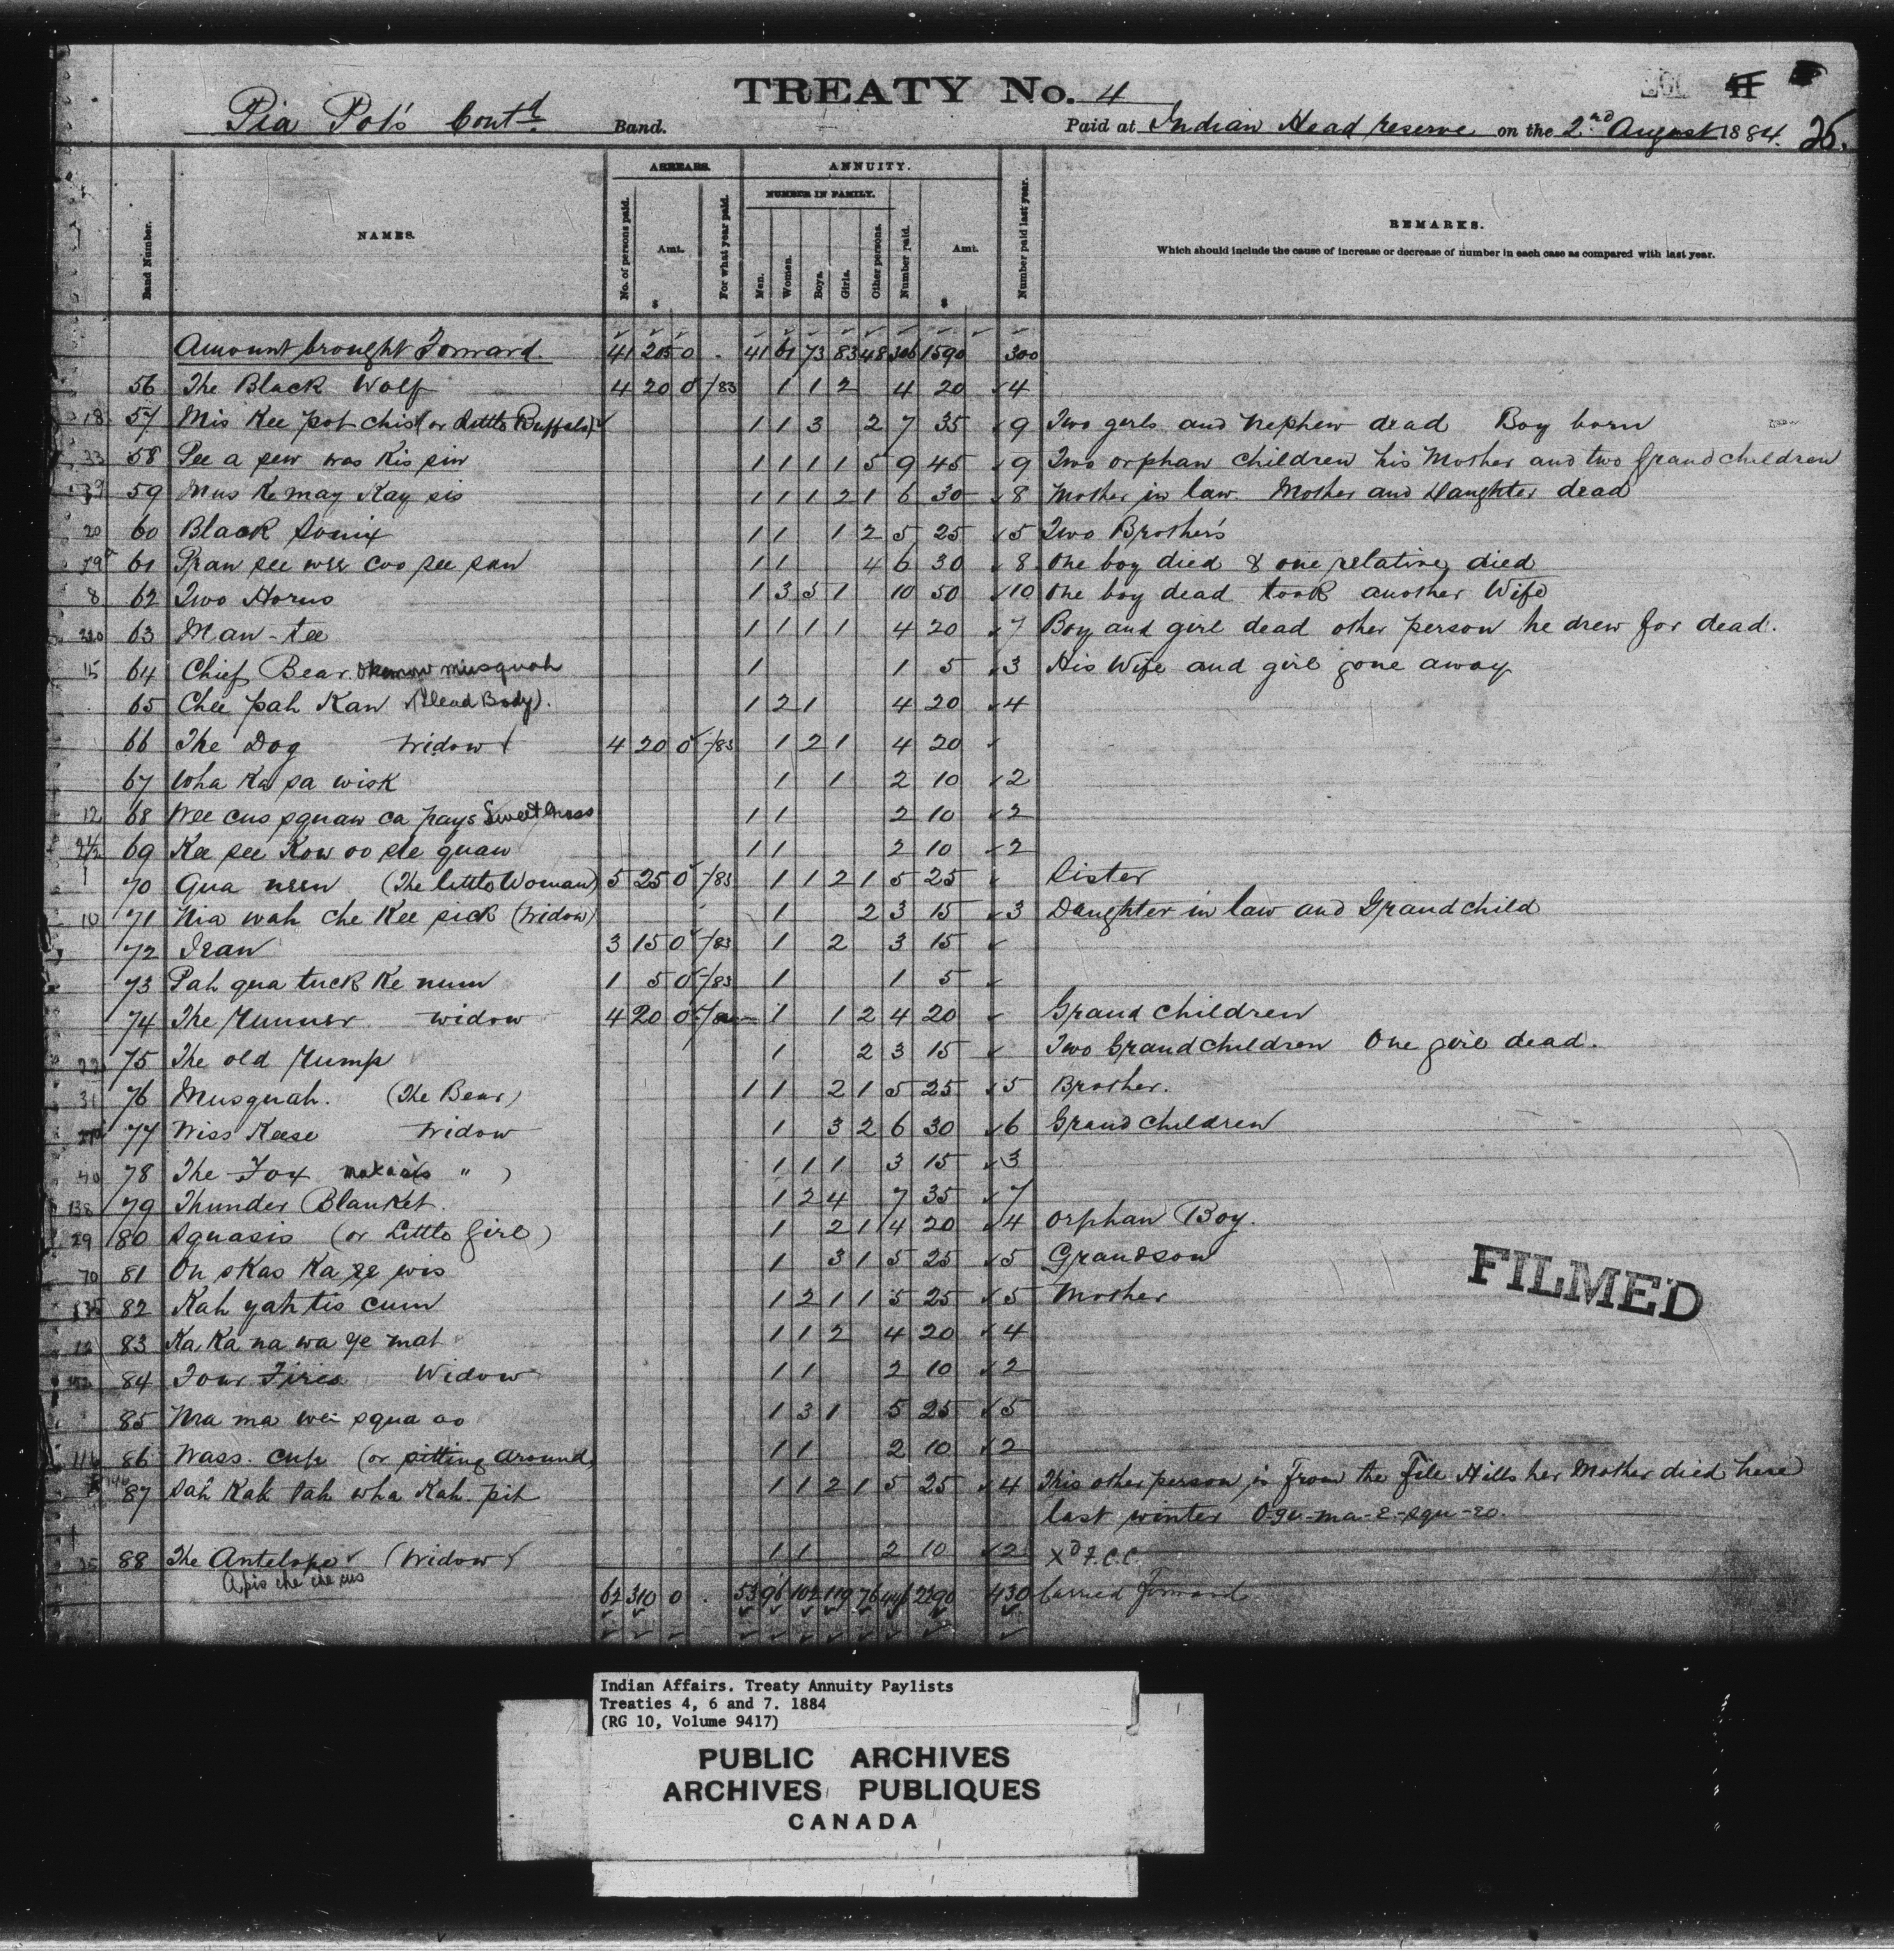 TREATY No. 4
Pia Pot's Contd. Band. Paid at Indian Head reserve on the 2nd August 1884. 26.
ARREARS. ANNUITY.
NUMBER IN FAMILY.
Band Number. NAMES. No. of persons paid. Amt. $ For what year paid. Men. Women. Boys. Girls. Other persons. Number paid. Amt. $ Number paid last year. REMARKS.
Which should include the cause of increase or decrease of number in each case as compared with last year.
Amount brought Forward. 41 205 0 41 61 73 83 48 306 1590 300
56 The Black Wolf 4 20 0 /83 1 1 2 4 20 4
18 57 Mis Kee pot chis (or Little Buffalo) 1 1 3 2 7 35 9 Two girls and nephew dead Boy born
33 58 Pee a pew was Kis sin 1 1 1 1 5 9 45 9 Two orphan children his Mother and two Grandchildren
59 Mus Ke may Kay sis 1 1 1 2 1 6 30 8 Mother in law. Mother and Daughter dead
20 60 Black Souix 1 1 1 2 5 25 5 Two Brother's
61 1 1 4 6 30 8 One boy died & one relative died
8 62 Two Horns 1 3 5 1 10 50 10 One boy dead took another Wife
63 Man-tee 1 1 1 1 4 20 7 Boy and girl dead other person he drew for dead.
15 64 Chief Bear. Okemow musquah 1 1 5 3 His Wife and girl gone away
65 Chee pah Kan (Dead Body). 1 2 1 4 20 4
66 The Dog Widow 4 20 0 /83 1 2 1 4 20
67 Wha Ka sa wisk 1 1 2 10 2
12 68 Wee cus squaw ca pays Sweet Grass 1 1 2 10 2
69 Kee see Kow oo see quaw 1 1 2 10 2
70 Qua neen (The little Woman) 5 25 0 /83 1 1 2 1 5 25 Sister
10 71 Nia wah che Kee sick (Widow) 1 2 3 15 3 Daughter in law and Grandchild
72 3 15 0 /83 1 2 3 15
73 Pah qua tuck Ke num 1 5 0 /83 1 1 5
74 The Runner widow 4 20 0 1 1 2 4 20 Grand children
75 The old Rump 1 2 3 15 Two Grandchildren One girl dead.
31 76 Musquah. (The Bear) 1 1 2 1 5 25 5 Brother.
77 Wiss Keese Widow 1 3 2 6 30 6 Grand children
78 The Fox " ) 1 1 1 3 15 3
138 79 Thunder Blanket. 1 2 4 7 35 7
29 80 Squasis (or Little Girl) 1 2 1 4 20 4 Orphan Boy.
70 81 On skas Ka ge wis 1 3 1 5 25 5 Grandson
82 Kah yah tis cum 1 2 1 1 5 25 5 Mother
12 83 Ka Ka na wa ye mat 1 1 2 4 20 4
84 Four Fires Widow 1 1 2 10 2
85 Ma ma wei squa oo 1 3 1 5 25 5
86 Wass. cup (or sitting around) 1 1 2 10 2
87 Sah Kak Pah wha Kah pit 1 1 2 1 5 25 4 This other person is from the File Hills her Mother died here
last winter O-gu-ma-e-squ-eo.
88 The Antelope (Widow) 1 1 2 10 2 Xd F.C.C.
Apis che che cus
62 310 0 53 96 102 119 76 446 2290 430 Carried forward
FILMED
Indian Affairs. Treaty Annuity Paylists
Treaties 4, 6 and 7. 1884
(RG 10, Volume 9417)
PUBLIC ARCHIVES
ARCHIVES PUBLIQUES
CANADA